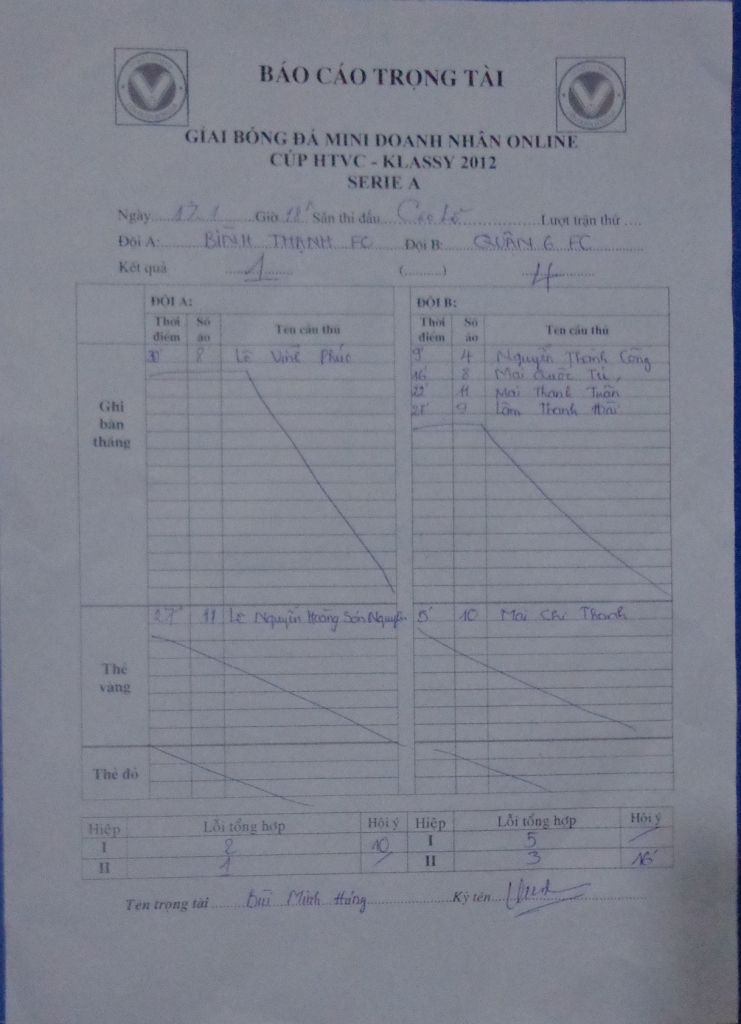 BÁO CÁO TRỌNG TÀI
GIẢI BÓNG ĐÁ MINI DOANH NHÂN ONLINE
CÚP HTVC - KLASSY 2012
SERIE A
Ngày 17.1 Giờ 18h Sân thi đấu Cao Lỗ Lượt trận thứ ....
Đội A: BÌNH THẠNH FC Đội B: QUẬN 6 FC
Kết quả 1 (..........) 4
ĐỘI A: ĐỘI B:
Thời điểm Số áo Tên cầu thủ Thời điểm Số áo Tên cầu thủ
Ghi bàn thắng
8 Lê Vinh Phúc 9' 4 Nguyễn Thành Công
16' 8 Mai Quốc Tú
22' 11 Mai Thanh Tuấn
9 Lâm Thanh Hải
Thẻ vàng
27' 11 Lê Nguyễn Hoàng Sơn Nguyên 5' 10 Mai Chí Thanh
Thẻ đỏ
Hiệp Lỗi tổng hợp Hội ý Hiệp Lỗi tổng hợp Hội ý
I 2 10 I 5
II 1 II 3 16'
Tên trọng tài Bùi Minh Hùng Ký tên